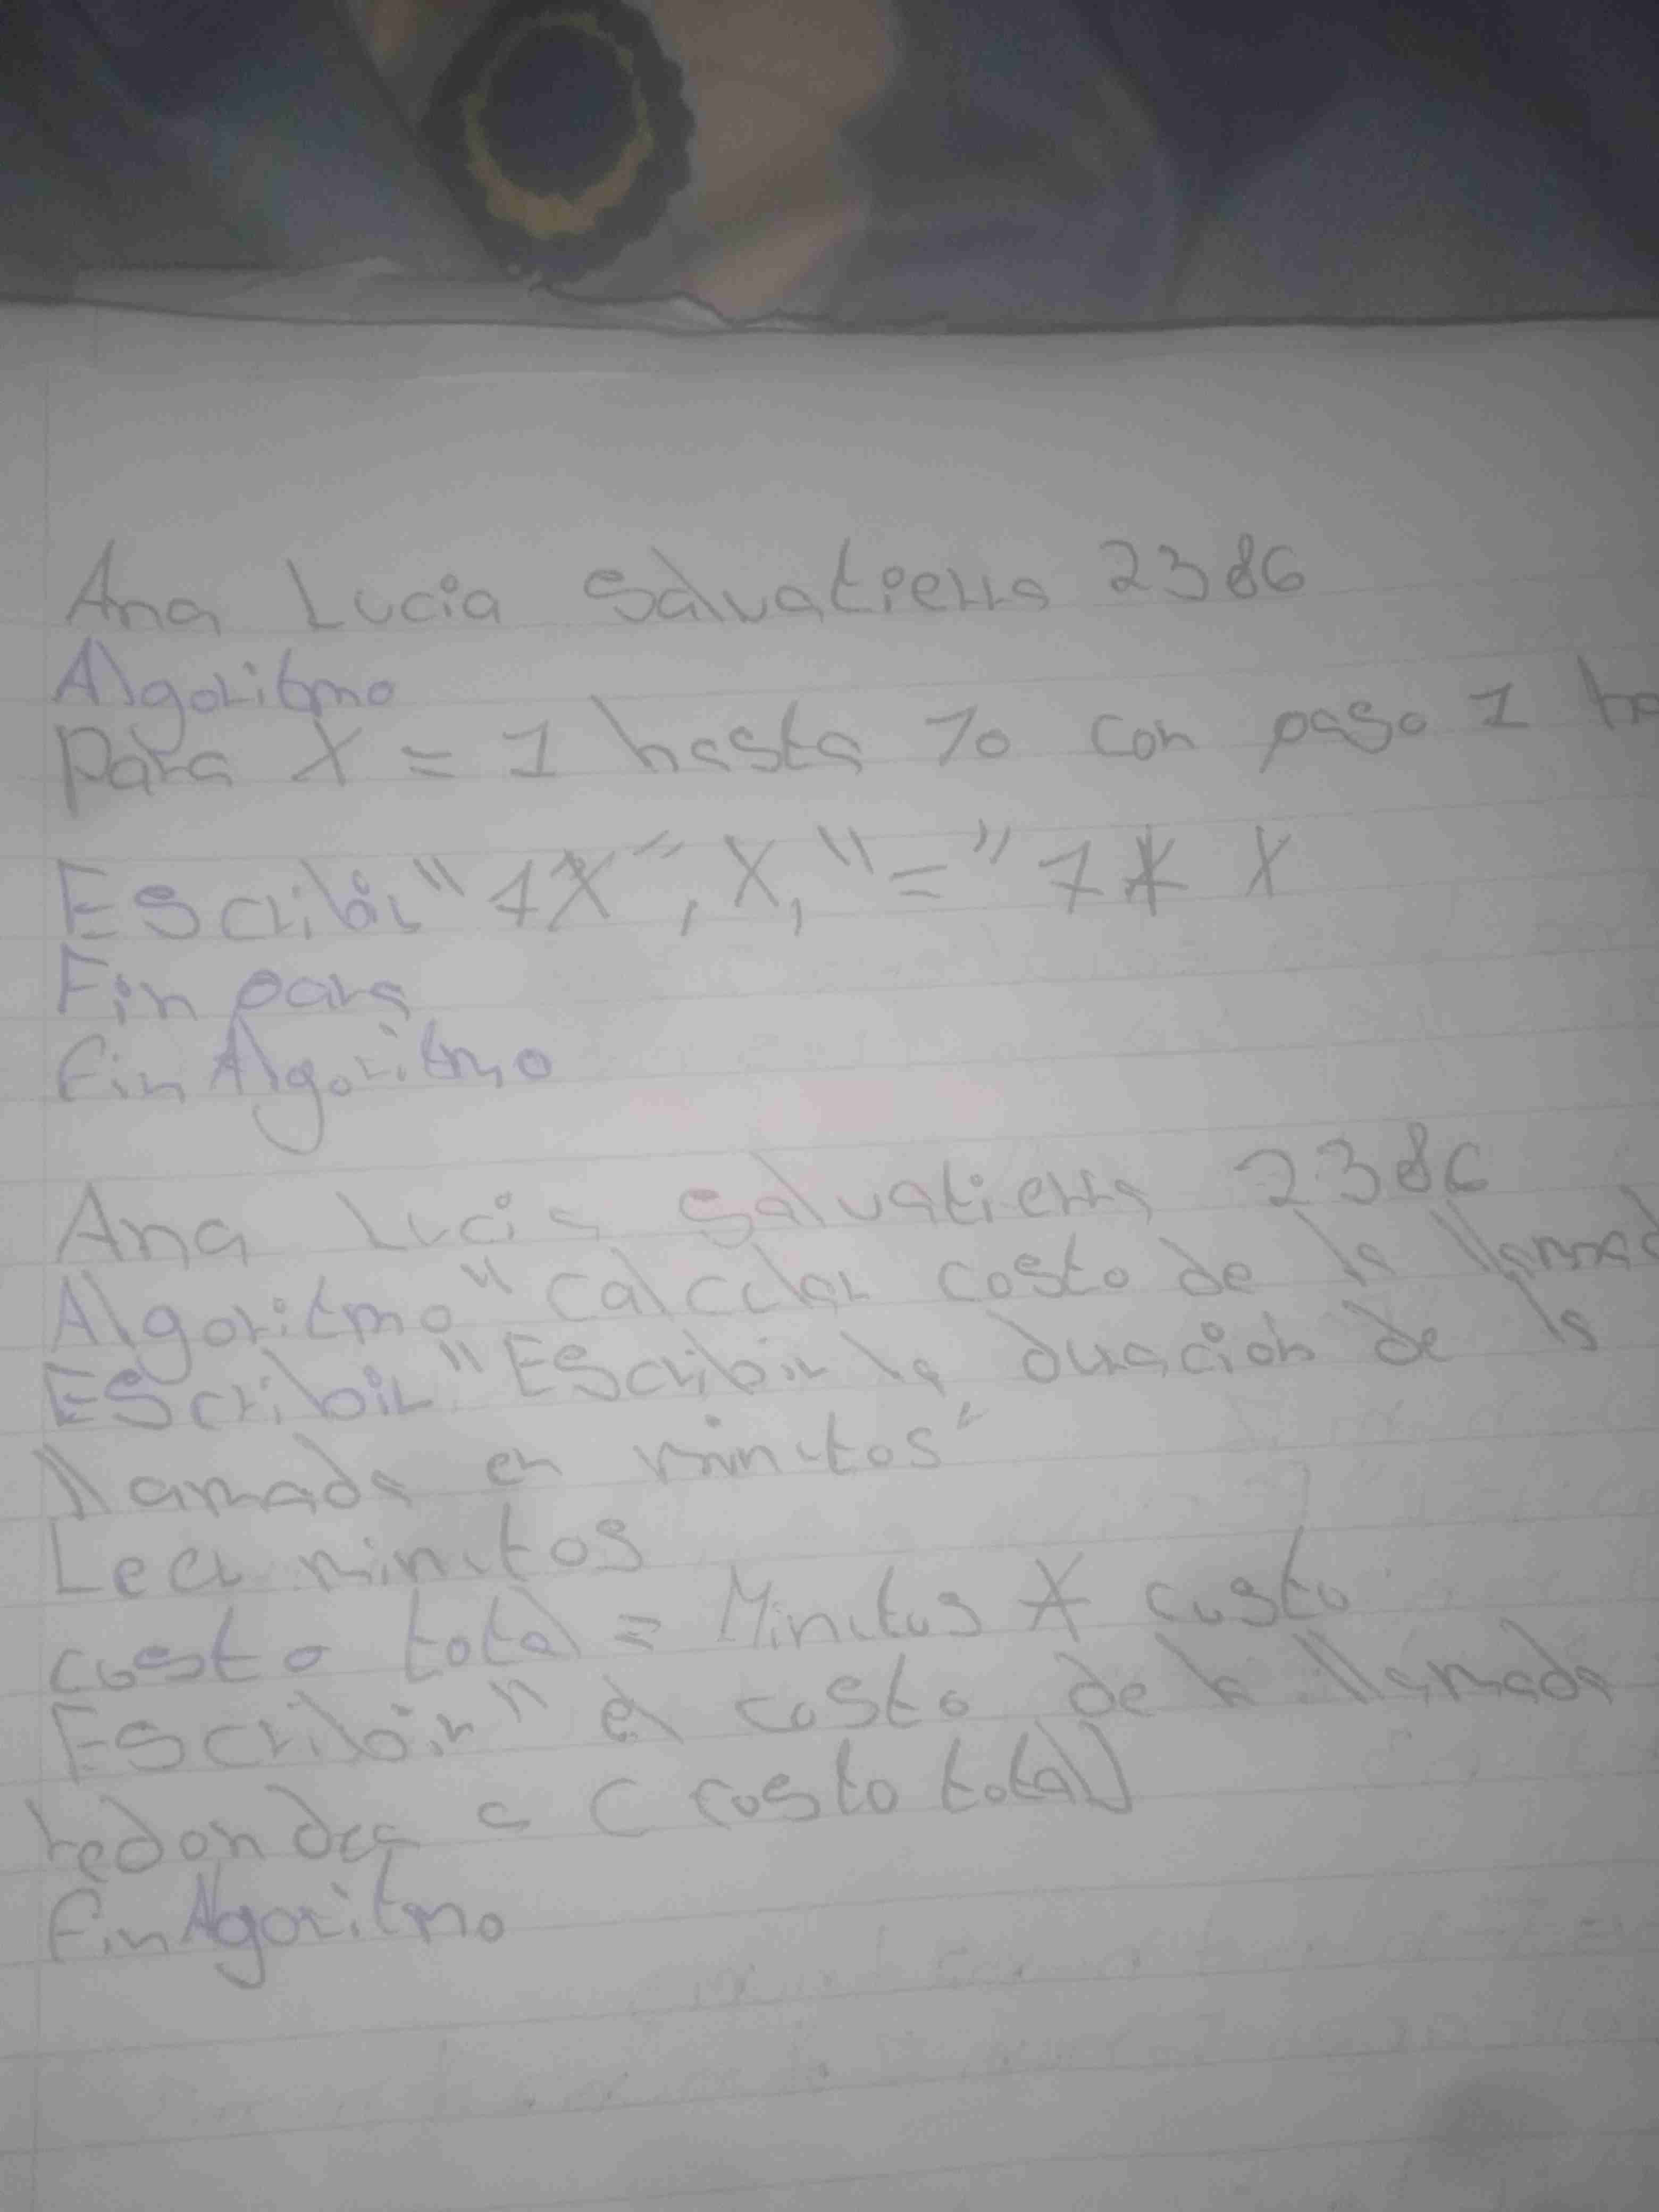 Ana Lucia Salvatierra 2386
Algoritmo
Para X = 1 hasta 10 con paso 1
Escribir "7X", X, "=" 7 * X
Fin para
fin Algoritmo
Ana Lucia Salvatierra 2386
Algoritmo "calcular costo de la llamad
Escribir "Escribir la duracion de la
llamada en minutos"
Leer minutos
costo total = Minutos * costo
Escribir " el costo de la llamada
redondea a ( costo total)
fin Algoritmo